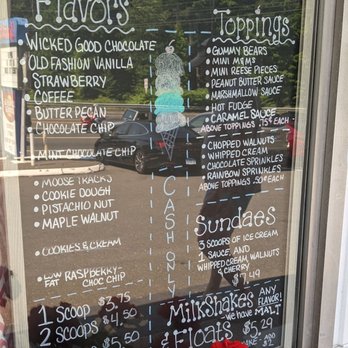 Flavors
• WICKED GOOD CHOCOLATE
• OLD FASHION VANILLA
• STRAWBERRY
• COFFEE
• BUTTER PECAN
• CHOCOLATE CHIP
• MINT CHOCOLATE CHIP
• MOOSE TRACKS
• COOKIE DOUGH
• PISTACHIO NUT
• MAPLE WALNUT
• COOKIES & CREAM
• LOW RASPBERRY-
FAT CHOC CHIP
1 SCOOP $3.75
2 SCOOPS $4.50
$5.50
CASH ONLY
Toppings
• GUMMY BEARS
• MINI M&MS
• MINI REESE PIECES
• PEANUT BUTTER SAUCE
• MARSHMALLOW SAUCE
• HOT FUDGE
• CARAMEL SAUCE
ABOVE TOPPINGS .75¢ EA.
• CHOPPED WALNUTS
• WHIPPED CREAM
• CHOCOLATE SPRINKLES
• RAINBOW SPRINKLES
ABOVE TOPPINGS .50¢ EA.
Sundaes
3 SCOOPS OF ICE CREAM
1 SAUCE, AND
WHIPPED CREAM, WALNUTS
& CHERRY
$7.49
MilkShakes ANY FLAVOR!
& Floats we HAVE MALT
$5.29